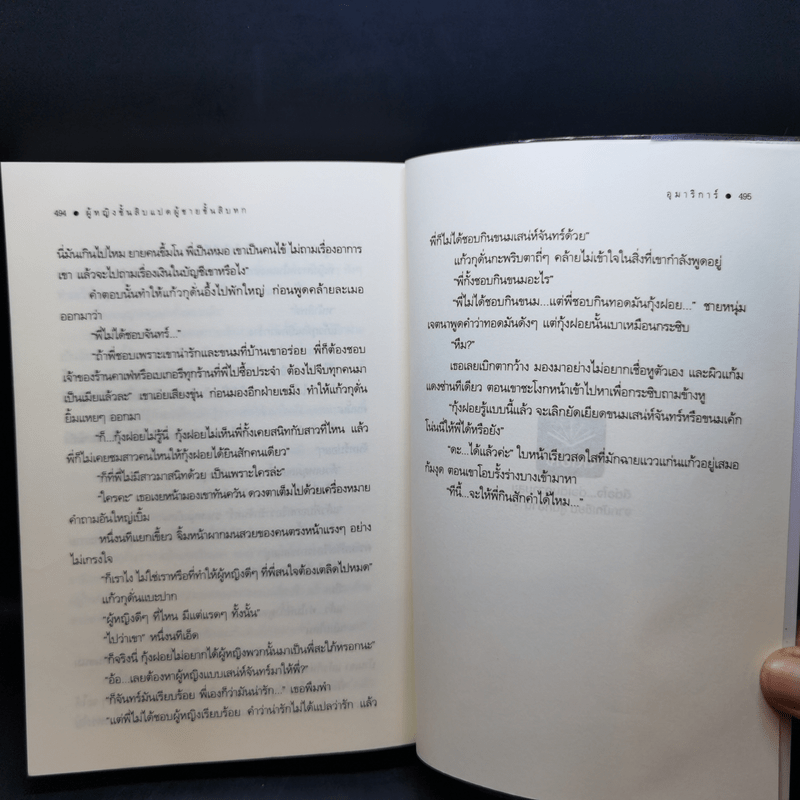 494 ● ผู้หญิงชั้นสิบแปดผู้ชายชั้นสิบหก
นี่มันเกินไปไหม ยายคนขี้มโน พี่เป็นหมอ เขาเป็นคนไข้ ไม่ถามเรื่องอาการ
เขา แล้วจะไปถามเรื่องเงินในบัญชีเขาหรือไง”
คำตอบนั้นทำให้แก้วกุดั่นอึ้งไปพักใหญ่ ก่อนพูดคล้ายละเมอ
ออกมาว่า
“พี่ไม่ได้ชอบจันทร์...”
“ถ้าพี่ชอบเพราะเขาน่ารักและขนมที่บ้านเขาอร่อย พี่ก็ต้องชอบ
เจ้าของร้านคาเฟ่หรือเบเกอรีทุกร้านที่พี่ไปซื้อประจำ ต้องไปจีบทุกคนมา
เป็นเมียแล้วละ” เขาเอ่ยเสียงขุ่น ก่อนมองอีกฝ่ายเขม็ง ทำให้แก้วกุดั่น
ยิ้มแหยๆ ออกมา
“ก็...กุ้งฝอยไม่รู้นี่ กุ้งฝอยไม่เห็นพี่กั้งเคยสนิทกับสาวที่ไหน แล้ว
พี่ก็ไม่เคยชมสาวคนไหนให้กุ้งฝอยได้ยินสักคนเดียว”
“ก็ที่พี่ไม่มีสาวมาสนิทด้วย เป็นเพราะใครล่ะ”
“ใครคะ” เธอเงยหน้ามองเขาทันควัน ดวงตาเต็มไปด้วยเครื่องหมาย
คำถามอันใหญ่เบิ้ม
หนึ่งนทีแยกเขี้ยว จิ้มหน้าผากมนสวยของคนตรงหน้าแรงๆ อย่าง
ไม่เกรงใจ
“ก็เราไง ไม่ใช่เราหรือที่ทำให้ผู้หญิงดีๆ ที่พี่สนใจต้องเตลิดไปหมด”
แก้วกุดั่นแบะปาก
“ผู้หญิงดีๆ ที่ไหน มีแต่แรดๆ ทั้งนั้น”
“ไปว่าเขา” หนึ่งนทีเอ็ด
“ก็จริงนี่ กุ้งฝอยไม่อยากได้ผู้หญิงพวกนั้นมาเป็นพี่สะใภ้หรอกนะ”
“อ้อ...เลยต้องหาผู้หญิงแบบเสน่ห์จันทร์มาให้พี่?”
“ก็จันทร์มันเรียบร้อย พี่เองก็ว่ามันน่ารัก...” เธอพึมพำ
“แต่พี่ไม่ได้ชอบผู้หญิงเรียบร้อย คำว่าน่ารักไม่ได้แปลว่ารัก แล้ว
อุมาริการ์ ● 495
พี่ก็ไม่ได้ชอบกินขนมเสน่ห์จันทร์ด้วย”
แก้วกุดั่นกะพริบตาถี่ๆ คล้ายไม่เข้าใจในสิ่งที่เขากำลังพูดอยู่
“พี่กั้งชอบกินขนมอะไร”
“พี่ไม่ได้ชอบกินขนม...แต่พี่ชอบกินทอดมันกุ้งฝอย...” ชายหนุ่ม
เจตนาพูดคำว่าทอดมันดังๆ แต่กุ้งฝอยนั้นเบาเหมือนกระซิบ
“หืม?”
เธอเลยเบิกตากว้าง มองมาอย่างไม่อยากเชื่อหูตัวเอง และผิวแก้ม
แดงซ่านทีเดียว ตอนเขาชะโงกหน้าเข้าไปหาเพื่อกระซิบถามข้างหู
“กุ้งฝอยรู้แบบนี้แล้ว จะเลิกยัดเยียดขนมเสน่ห์จันทร์หรือขนมเค้ก
โน่นนี่ให้พี่ได้หรือยัง”
“ดะ...ได้แล้วค่ะ” ใบหน้าเรียวสดใสที่มักฉายแววแก่นแก้วอยู่เสมอ
ก้มงุด ตอนเขาโอบรั้งร่างบางเข้ามาหา
“ทีนี้...จะให้พี่กินสักคำได้ไหม...”